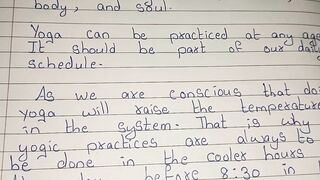 body, and soul.
Yoga can be practiced at any age
It should be part of our dail
schedule.
As we are conscious that doi
yoga will raise the temperature
in the system. That is why
yogic practices are always to
be done in the cooler hours
before 8:30 in